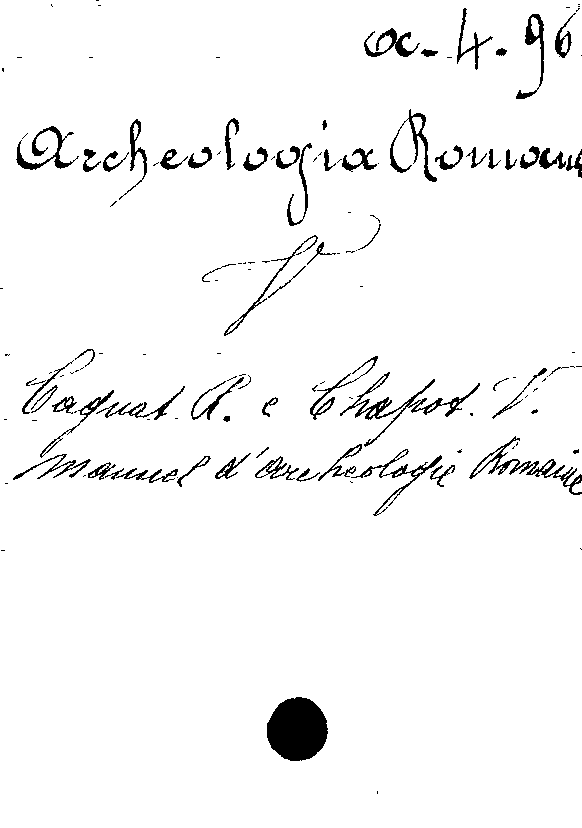 α-4-96
Archeologia Romana
V
Cagnat R. e Chapot. V.
Manuel d'archeologie Romaine